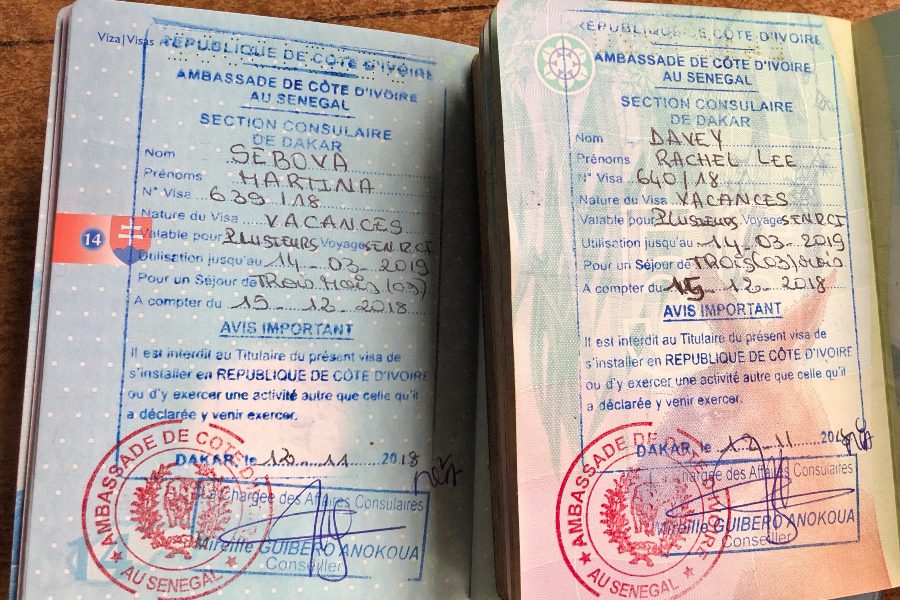 Viza|Visas
REPUBLIQUE DE CÔTE D'IVOIRE
AMBASSADE DE CÔTE D'IVOIRE
AU SENEGAL
SECTION CONSULAIRE
DE DAKAR
Nom SEBOVA
Prénoms MARTINA
N° Visa 639/18
Nature du Visa VACANCES
Valable pour PLUSIEURS Voyages EN RCI
Utilisation jusqu'au 14-03-2019
Pour un Séjour de TROIS MOIS (03)
A compter du 15-12-2018
AVIS IMPORTANT
Il est interdit au Titulaire du présent visa de
s'installer en REPUBLIQUE DE CÔTE D'IVOIRE
ou d'y exercer une activité autre que celle qu'il
a déclarée y venir exercer.
DAKAR, le 12 11 2018
La Chargée des Affaires Consulaires
Mireille GUIBERO ANOKOUA
Conseiller
AMBASSADE DE COTE D'
AU SENEGAL
14
REPUBLIQUE DE CÔTE D'IVOIRE
AMBASSADE DE CÔTE D'IVOIRE
AU SENEGAL
SECTION CONSULAIRE
DE DAKAR
Nom DAVEY
Prénoms RACHEL LEE
N° Visa 640/18
Nature du Visa VACANCES
Valable pour PLUSIEURS Voyages EN RCI
Utilisation jusqu'au 14-03-2019
Pour un Séjour de TROIS (03) MOIS
A compter du 15-12-2018
AVIS IMPORTANT
Il est interdit au Titulaire du présent visa de
s'installer en REPUBLIQUE DE CÔTE D'IVOIRE
ou d'y exercer une activité autre que celle qu'il
a déclarée y venir exercer.
DAKAR, le 12-11 2018
Chargée des Affaires Consulaires
Mireille GUIBERO ANOKOUA
Conseiller
AMBASSADE DE COTE D'IVOIRE
AU SENEGAL